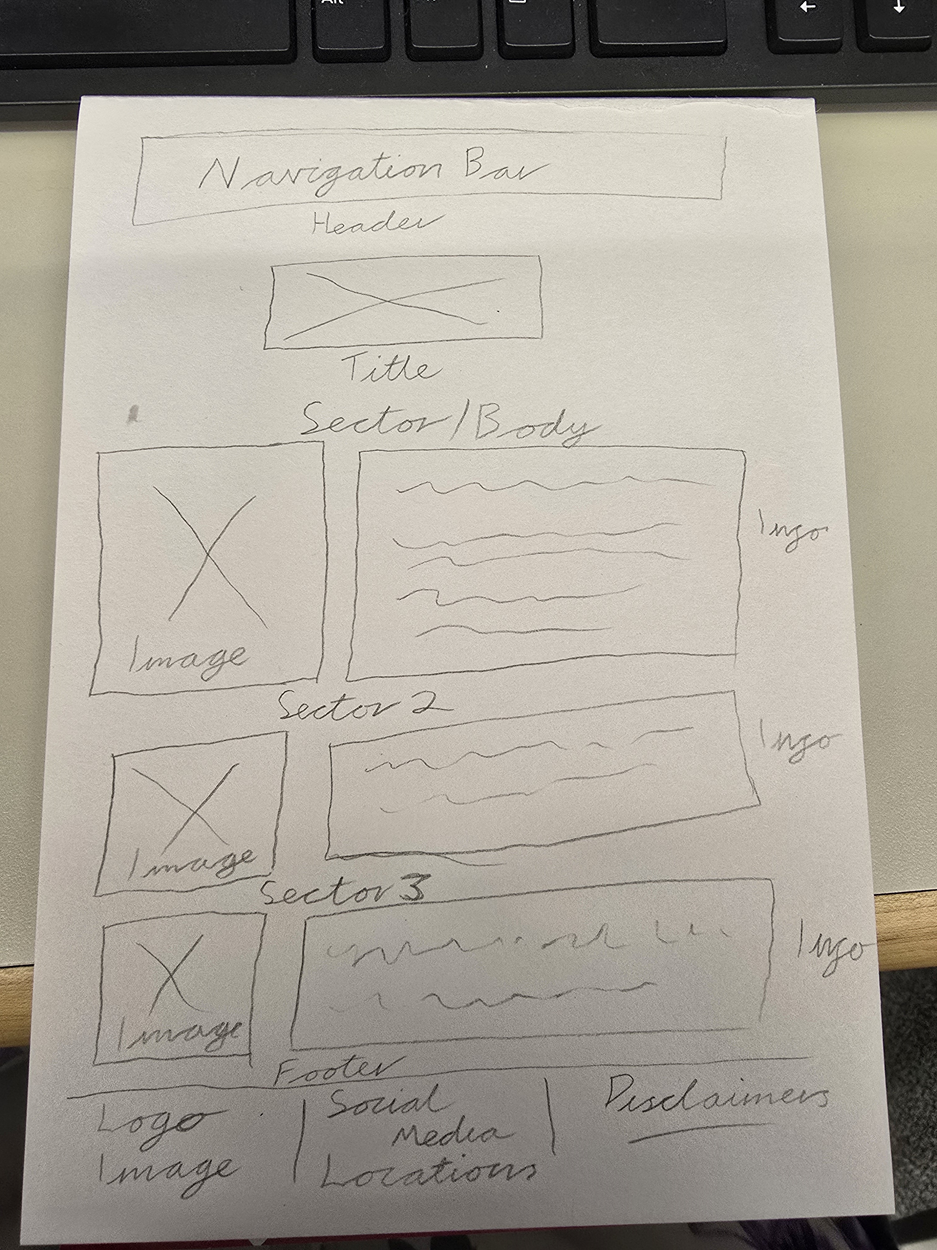 Alt
Navigation Bar
Header
Title
Sector/Body
Image
Ingo
Sector 2
Image
Ingo
Sector 3
Image
Ingo
Footer
Logo
Image
Social
Media
Locations
Disclaimers